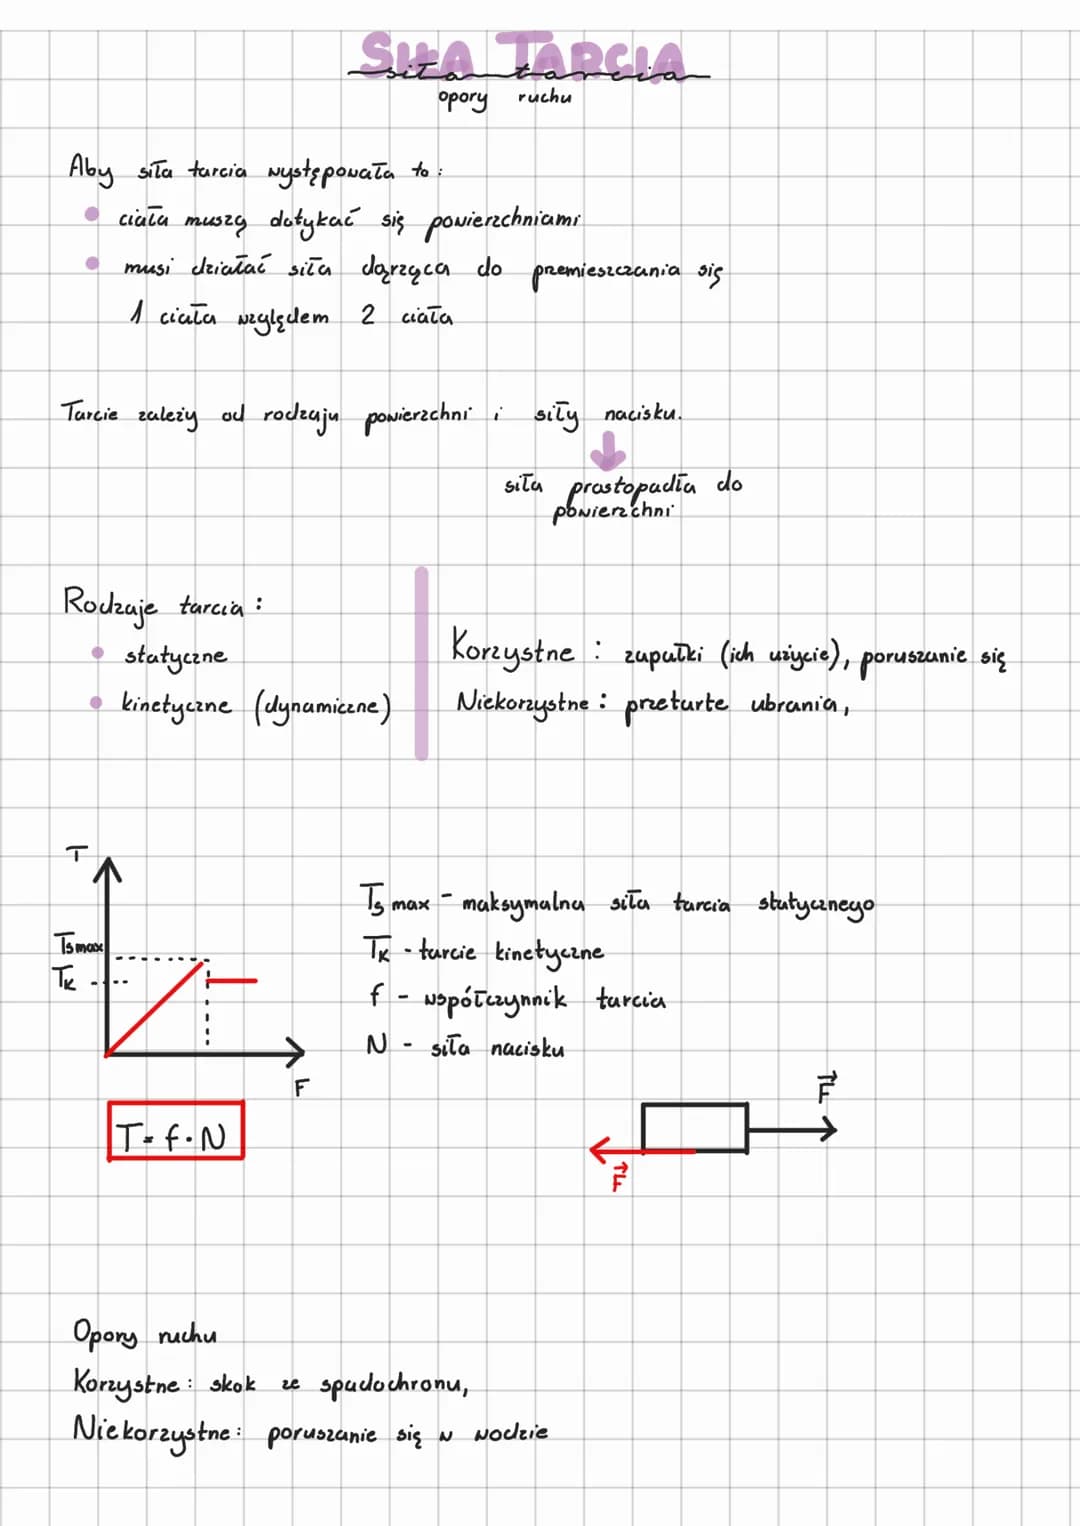 SIŁA TARCIA
siła tarcia
opory ruchu
Aby siła tarcia występowała to:
ciała muszą dotykać się powierzchniami
musi działać siła dążąca do przemieszczania się
1 ciała względem 2 ciała
Tarcie zależy od rodzaju powierzchni i siły nacisku.
siła prostopadła do
powierzchni
Rodzaje tarcia:
statyczne
kinetyczne (dynamiczne)
Korzystne: zapałki (ich użycie), poruszanie się
Niekorzystne: przetarte ubrania,
T
Ts max
TK
F
T = f · N
Ts max - maksymalna siła tarcia statycznego
TK - tarcie kinetyczne
f - współczynnik tarcia
N - siła nacisku
F
F
Opory ruchu
Korzystne: skok ze spadochronu,
Niekorzystne: poruszanie się w wodzie